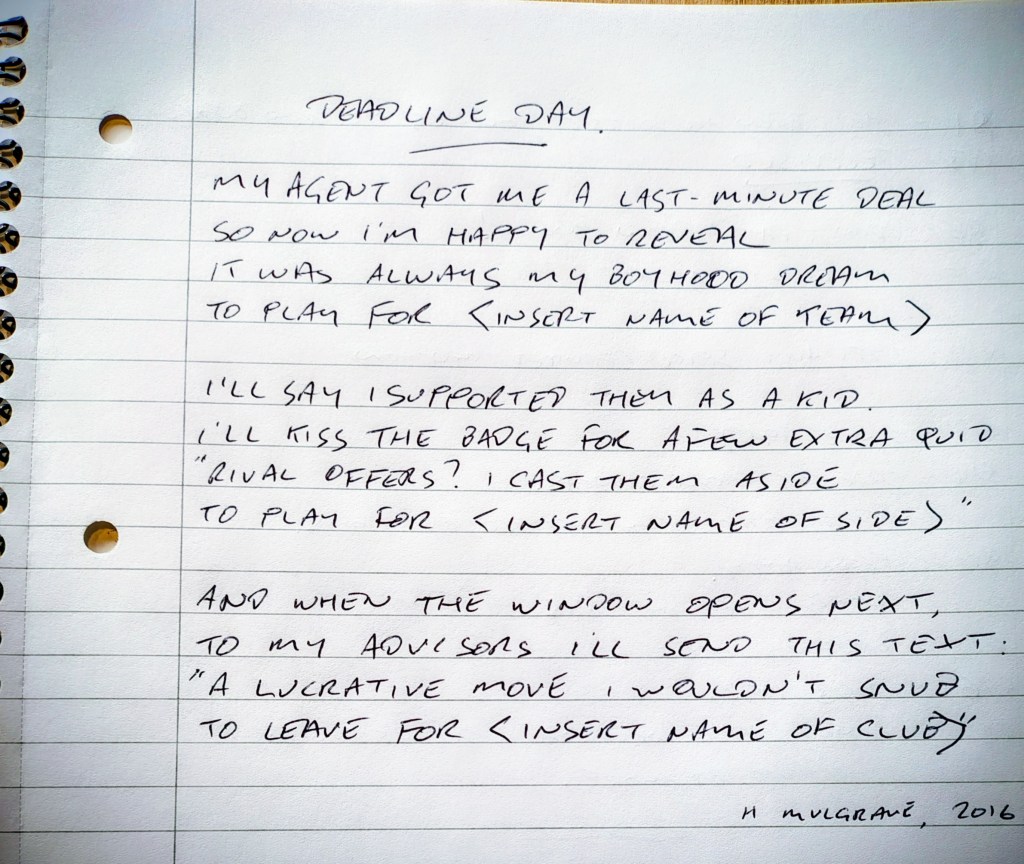 DEADLINE DAY.
MY AGENT GOT ME A LAST-MINUTE DEAL
SO NOW I'M HAPPY TO REVEAL
IT WAS ALWAYS MY BOYHOOD DREAM
TO PLAY FOR <INSERT NAME OF TEAM>
I'LL SAY I SUPPORTED THEM AS A KID.
I'LL KISS THE BADGE FOR A FEW EXTRA QUID
"RIVAL OFFERS? I CAST THEM ASIDE
TO PLAY FOR <INSERT NAME OF SIDE>"
AND WHEN THE WINDOW OPENS NEXT,
TO MY ADVISORS I'LL SEND THIS TEXT:
"A LUCRATIVE MOVE I WOULDN'T SNUB
TO LEAVE FOR <INSERT NAME OF CLUB>"
H MULGRAVE, 2016